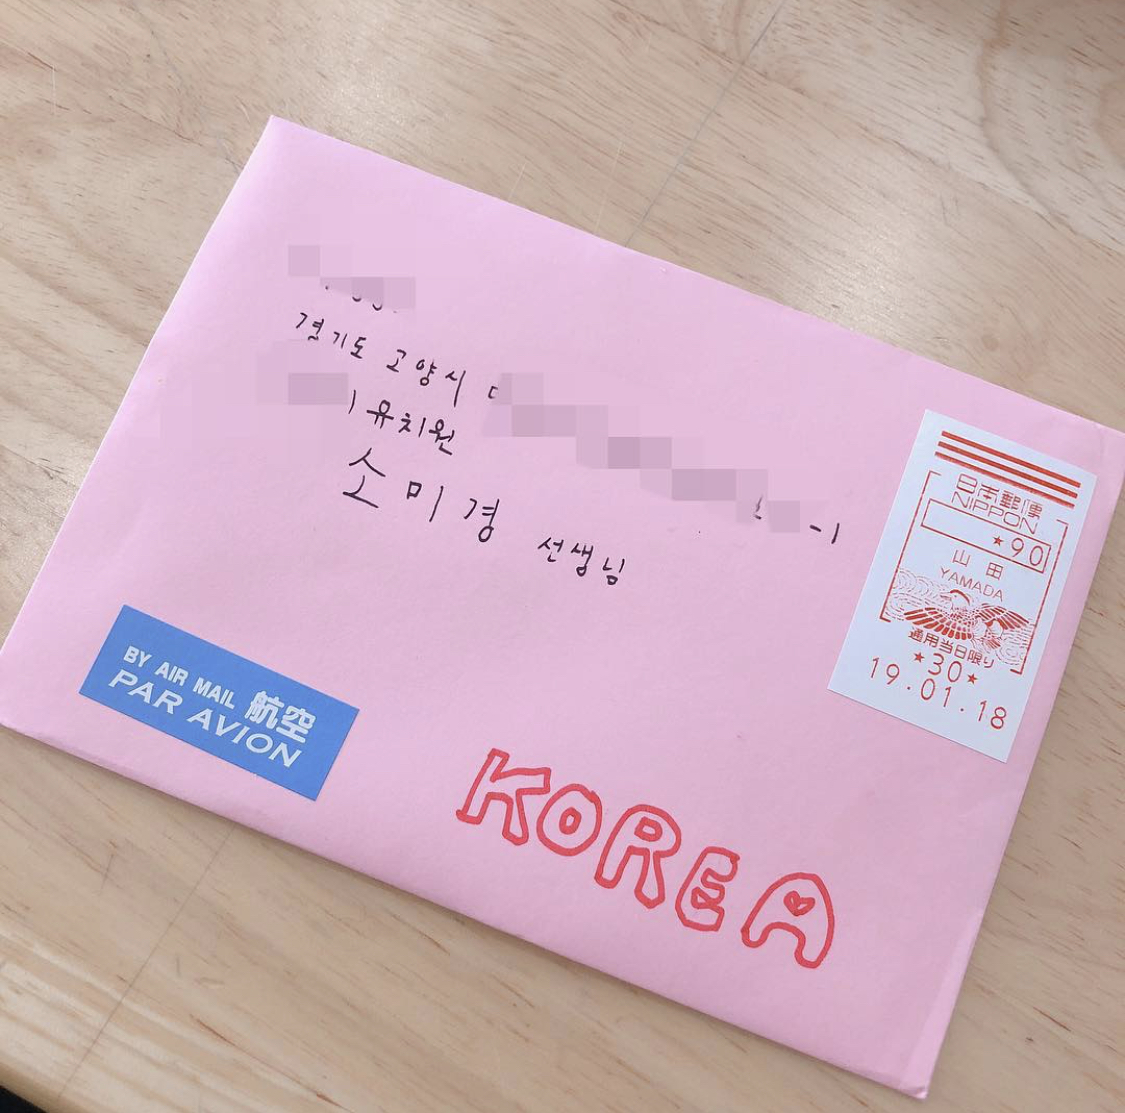 경기도 고양시
유치원
소미경 선생님
日本郵便
NIPPON
★90
山田
YAMADA
通用当日限り
★30★
19.01.18
BY AIR MAIL 航空
PAR AVION
KOREA